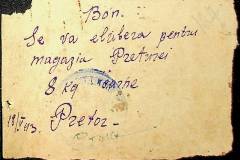 Bon.
Se va elibera pentru
magazia Preturei
8 kg carne
18/V 943.
Pretor